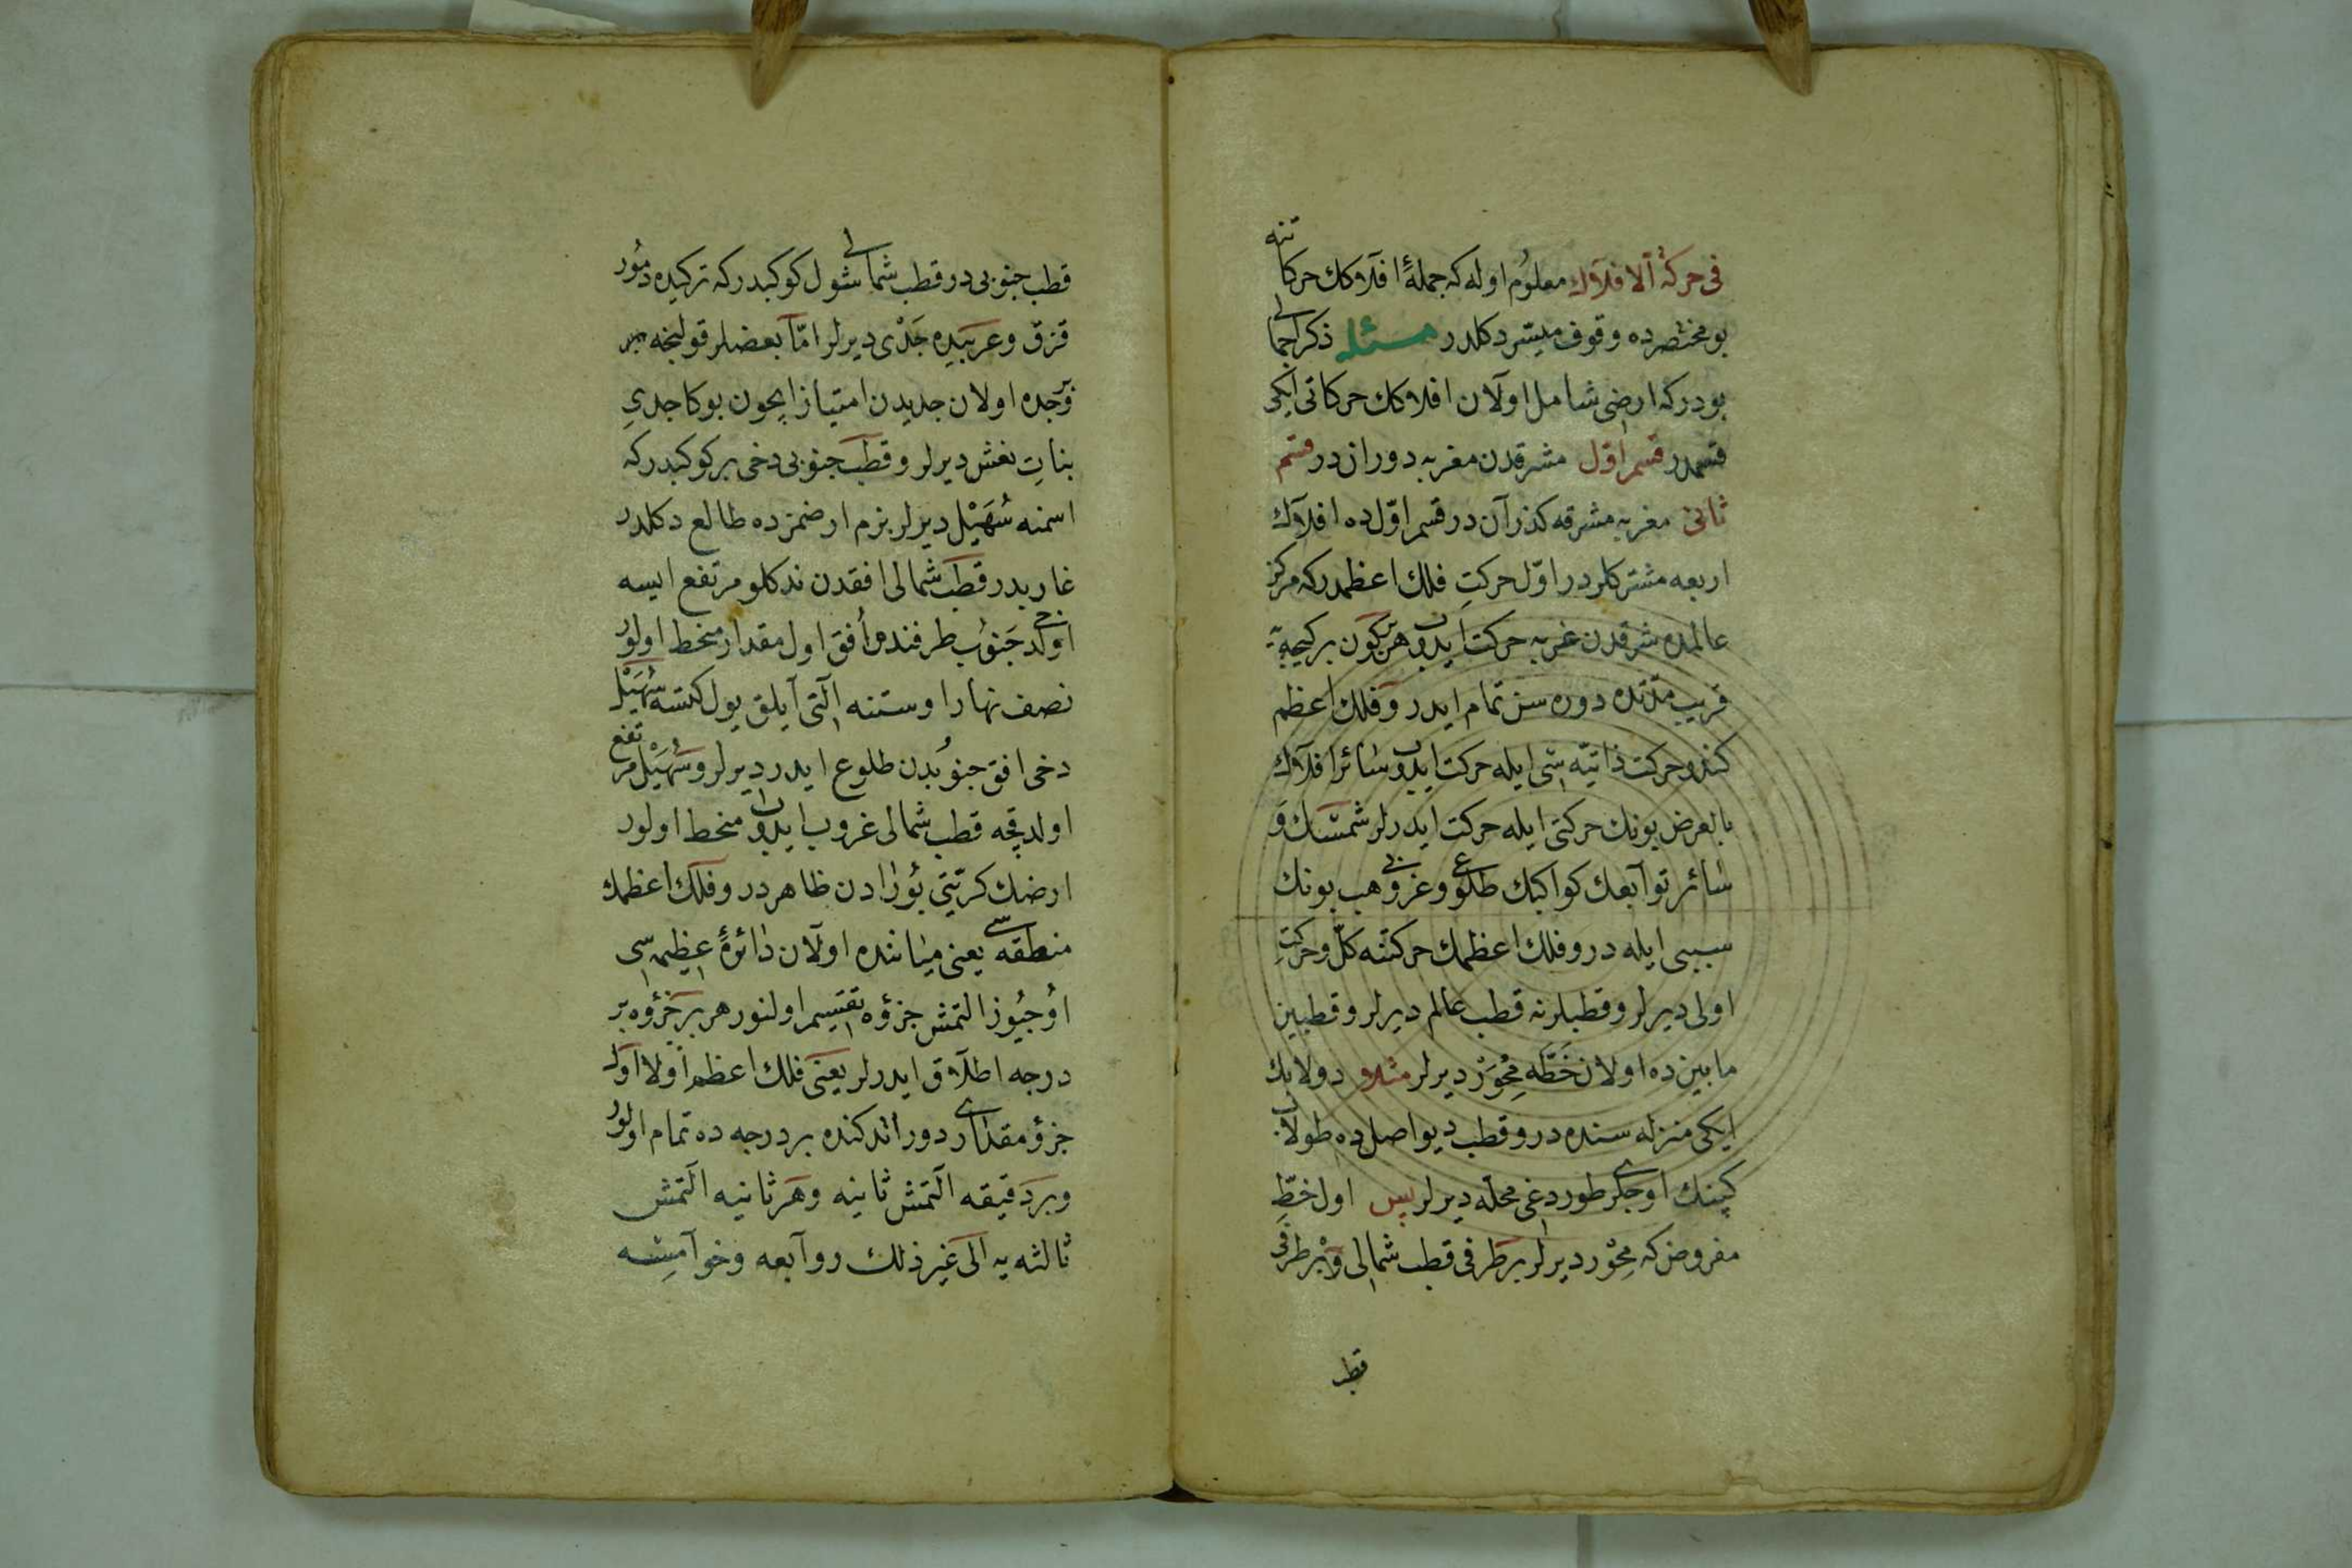 فی حرکۀ الافلاك معلوم اوله که جملۀ افلاكك حرکاتنه
بو مختصرده وقوف میسّر دكلدر مسئله ذکر اجمالی
بودركه ارضی شامل اولان افلاكك حركاتی ایکی
قسمدر قسم اوّل مشرقدن مغربه دوراندر قسم
ثانی مغربه مشرقه كذراندر قسم اوّلده افلاك
اربعه مشتركلردر اوّل حركتِ فلك اعظمدركه مركز
عالمده شرقدن غربه حركت ایدوب هر كون بر كیجه یه
قریب مدّتده دوره سن تمام ایدر و فلك اعظم
كندو حركت ذاتیّه سی ایله حركت ایدوب سائر افلاك
بالعرض بونك حركتی ایله حركت ایدرلر شمسك و
سائر توابعك كواكبك طلوع و غروبی هب بونك
سببی ایله در و فلك اعظمك حركتنه كلّ و حركتِ
اولی دیرلر و قطبلرنه قطب عالم دیرلر و قطبین
مابینده اولان خطّه مِحْوَر دیرلر مثلا دولابك
ایكی منزله سنده در و قطب دیو اصلده طولاب
كپنك اوجلری طوردغی محلّه دیرلر پس اول خطّ
مفروض كه مِحْور دیرلر بر طرفی قطب شمالی و بر طرفی
قط
قطب جنوبی در قطب شمالی شول كوكبدركه تركیده دمُور
قزق و عربیده جَدْی دیرلر امّا بعضلر قولنجه
برجده اولان جدیدن امتیاز ایچون بوكا جدیِ
بناتِ نعش دیرلر و قطب جنوبی دخی بر كوكبدركه
اسمنه سُهَیْل دیرلر بزم ارضمزده طالع دكلدر
غاربدر قطب شمالی افقدن ندكلو مرتفع ایسه
اولدخی جَنوُب طرفنده اُفق اول مقدار منخط اولور
نصف نهار اوستنه الّتی آیلق یول كتسه سُهَیْل
دخی افق جنوُبدن طلوع ایدر دیرلر و سُهَیْل مرتفع
اولدقجه قطب شمالی غروب ایدوب منخط اولور
ارضك كریّتی بُورادن ظاهردر و فلك اعظمك
منطقه سی یعنی میاننده اولان دائرۀ عظیمه سی
اوُجیُوز التمش جزؤه تقسیم اولنور هر بر جزؤه بر
درجه اطلاق ایدرلر یعنی فلك اعظم اولا اول
جزؤ مقداری دوراند كنده بر درجه ده تمام اولور
و بر دقیقه التمش ثانیه و هر ثانیه التمش
ثالثه یه الی غیر ذلك روابعه و خوامسه